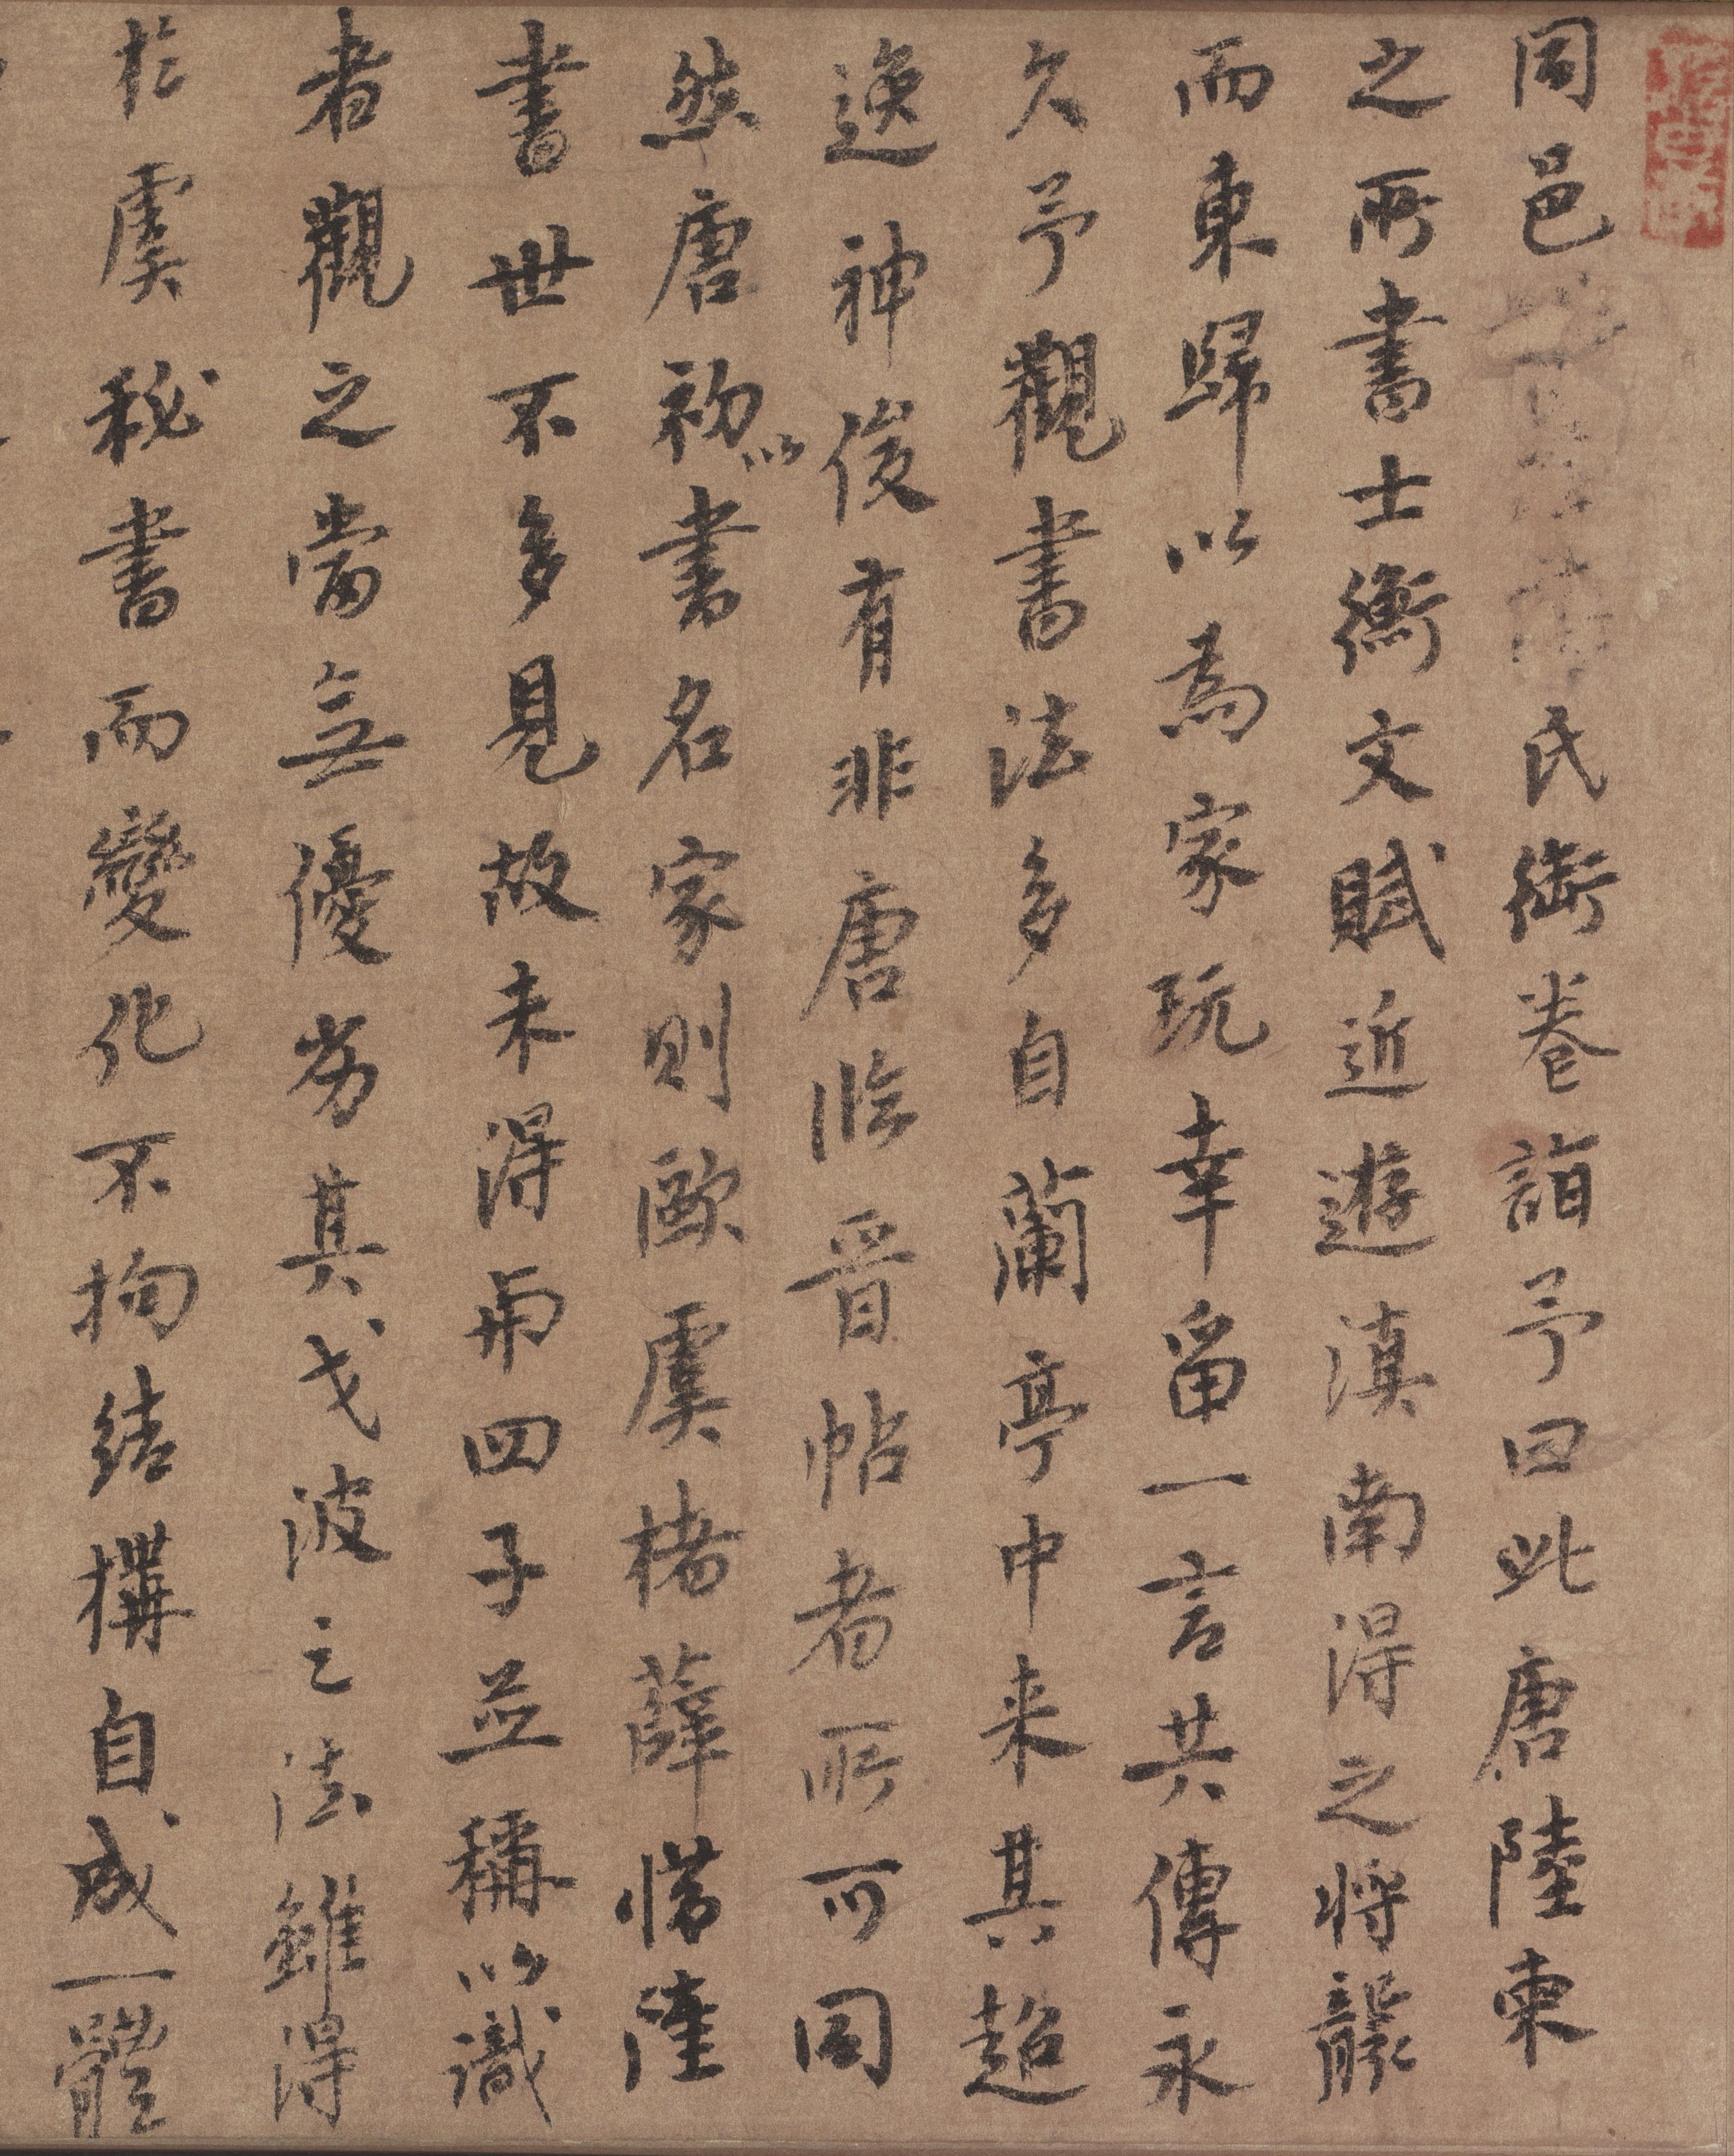 同邑氏衒卷詣予曰此唐陸柬
之所書士衡文賦近遊滇南得之將襲
而東歸以為家玩幸留一言共傳永
久予觀書法多自蘭亭中来其超
逸神俊有非唐臨晉帖者所可同
然唐初以書名家則歐虞褚薛惜陸
書世不多見故未得與四子並稱以識
者觀之當無優劣其戈波之法雖得
於虞秘書而變化不拘結構自成一體